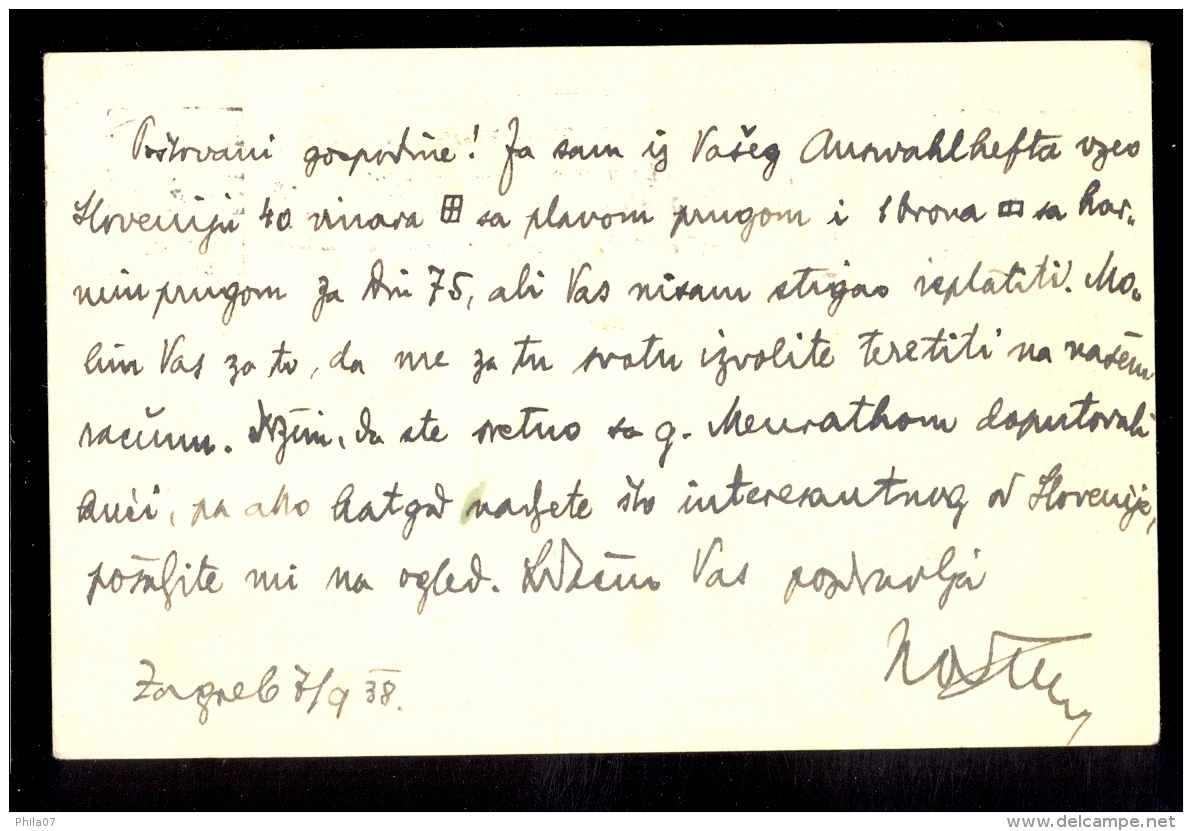 Poštovani gospodine! Ja sam iz Vašeg Auswahlhefta uzeo
Sloveniju 40 vinara ⊞ sa plavom prugom i 1 kruna sa kar-
min prugom za Din 75, ali Vas nisam stigao isplatiti. Mo-
lim Vas za to, da me za tu svotu izvolite teretiti na našem
računu. Držim, da ste sretno sa g. Meurathom doputovali
kući, pa ako katgod nadjete što interesantnog od Slovenije,
pošaljite mi na ogled. Srdačno Vas pozdravlja
Zagreb 7/9 38.
Phila07
www.delcampe.net